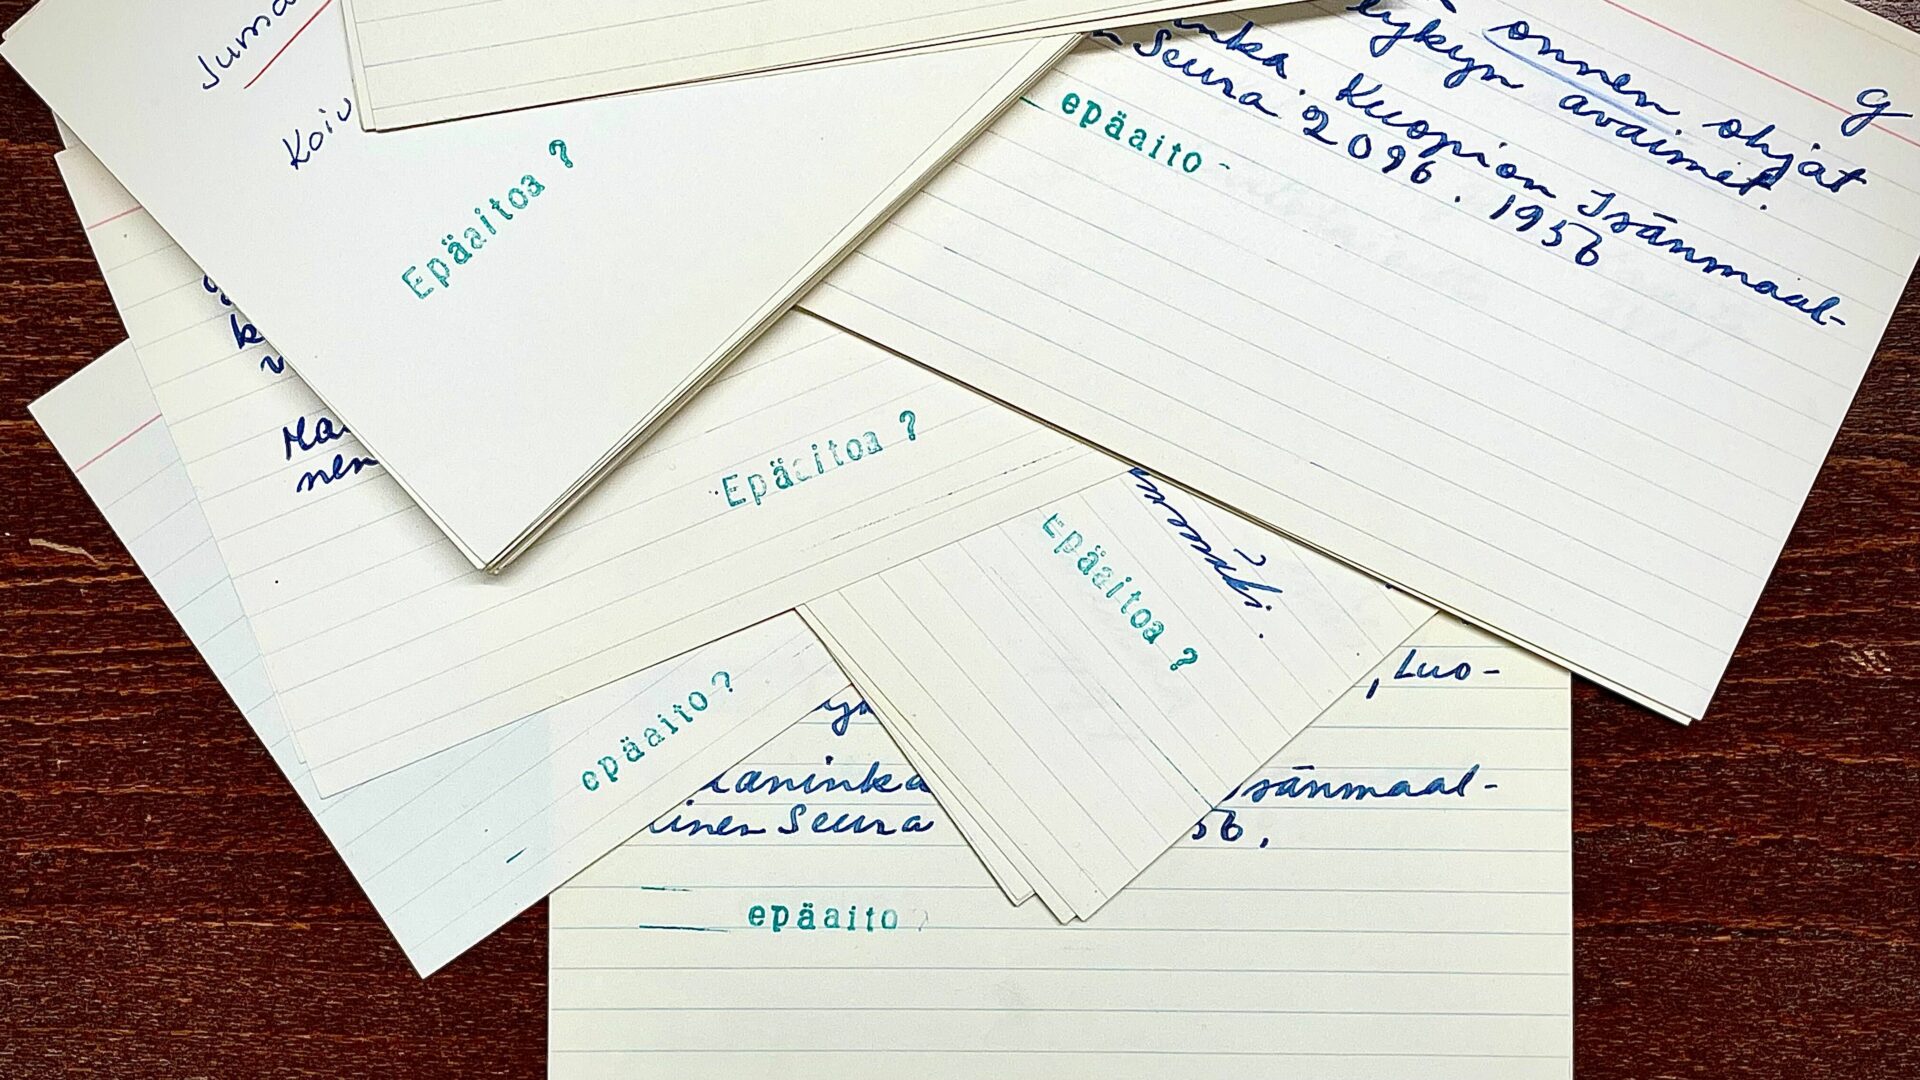 Koiv
Epäaitoa ?
g
onnen ohjat
lykyn avaimet.
inka. Kuopion Isänmaal-
n Seura 2096. 1956
epäaito -
k
v
Ma
nen
Epäaitoa ?
Epäaitoa ?
epäaito ?
, Luo-
aninka
sänmaal-
inen Seura
56.
epäaito